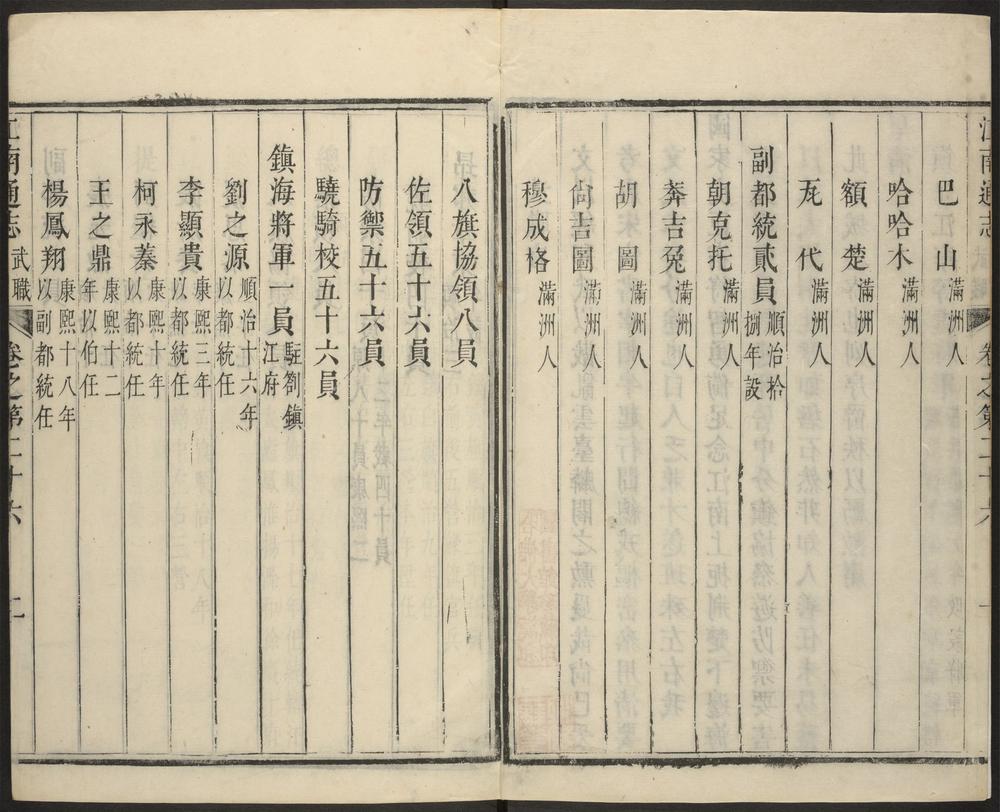 江南通志 卷之第二十六
巴山 滿洲人
哈哈木 滿洲人
額楚 滿洲人
㐰代 滿洲人
副都統貳員 順治拾捌年設
朝克托 滿洲人
奔吉兔 滿洲人
胡圖 滿洲人
尚吉圖 滿洲人
穆成格 滿洲人
八旗協領八員
佐領五十六員
防禦五十六員
驍騎校五十六員
鎮海將軍一員 駐劄鎮江府
劉之源 順治十六年以都統任
李顯貴 康熙三年以都統任
柯永蓁 康熙十年以都統任
王之鼎 康熙十二年以伯任
楊鳳翔 康熙十八年以副都統任
江南通志 武職 卷之第二十六 二